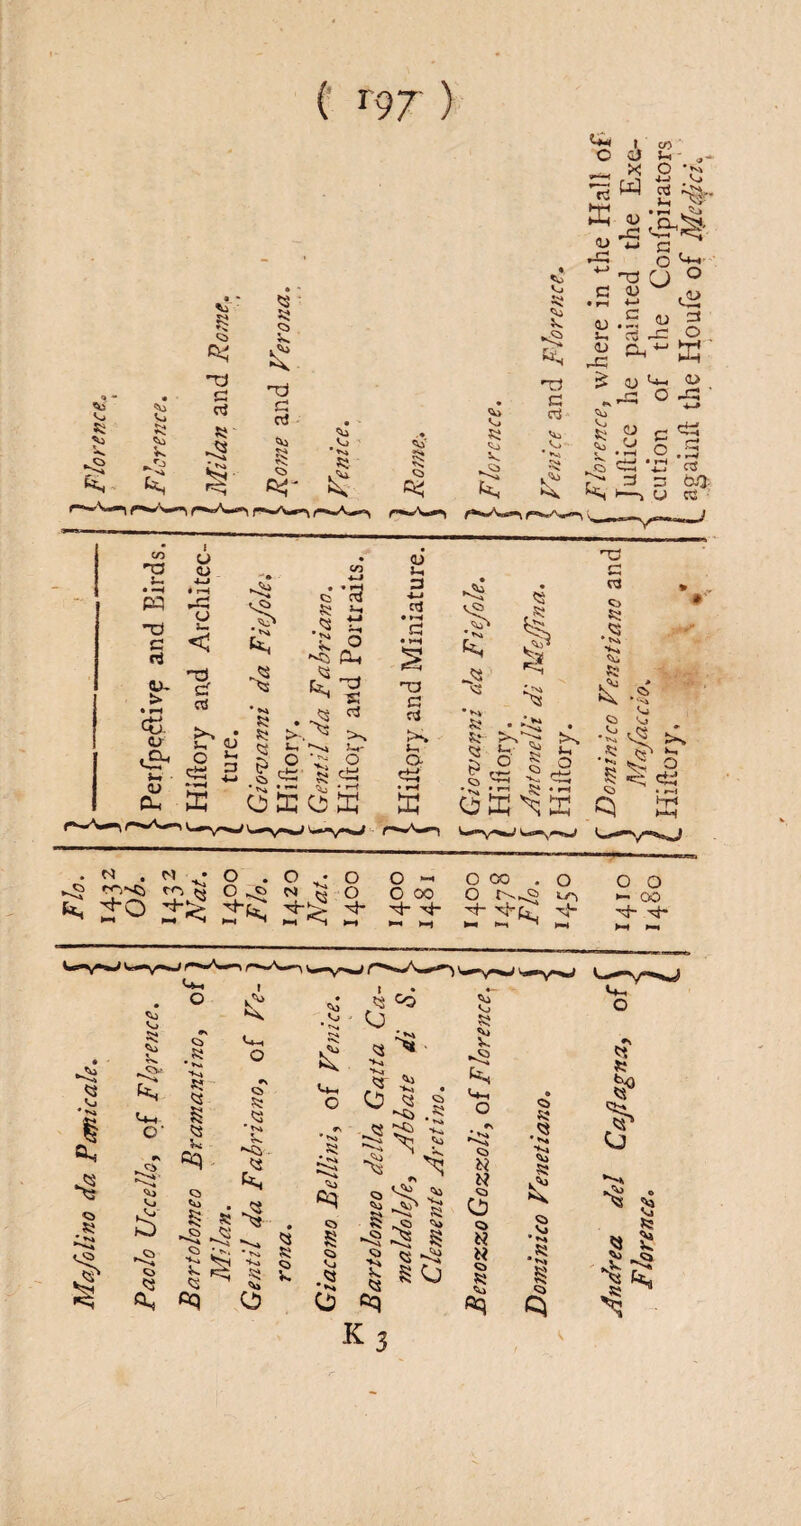 ( 197 )
Maſolino da Panicale. Flo. ——— Florence.
Paolo Uccello, of Florence. 1432 Ob. Perſpective and Birds. Florence.
Bartolomeo Bramantino, of 1432 Hiſtory and Architec- Milan and Rome.
Milan. Nat. ture.
Gentil da Fabriano, of Ve- 1400 Giovanni da Fieſole. Rome and Verona.
rona. Flo. Hiſtory.
1420 Gentil da Fabriano.
Giacomo Bellini, of Venice. Nat. Hiſtory and Portraits. Venice.
1400
Bartolomeo della Gatta Ca- 1400 Hiſtory and Miniature. Rome.
maldoleſe, Abbate di S. 1481
Clemente Aretino.
Benozzo Gozzoli, of Florence. 1400 Giovanni da Fieſole. Florence.
1478 Hiſtory.
Flo. Antonelli di Meſſina.
Dominico Venetiano. 1450 Hiſtory. Venice and Florence.
Andrea del Caſtagna, of 1410 Dominico Venetiano and Florence, where in the Hall of
Florence. 1480 Maſaccio. Juſtice he painted the Exe-
Hiſtory. cution of the Conſpirators
againſt the Houſe of Medici.
K 3